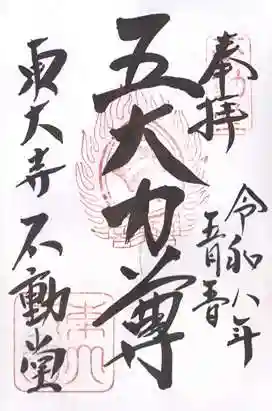 奉拝
令和八年
五月五日
五大力尊
東大寺 不動堂